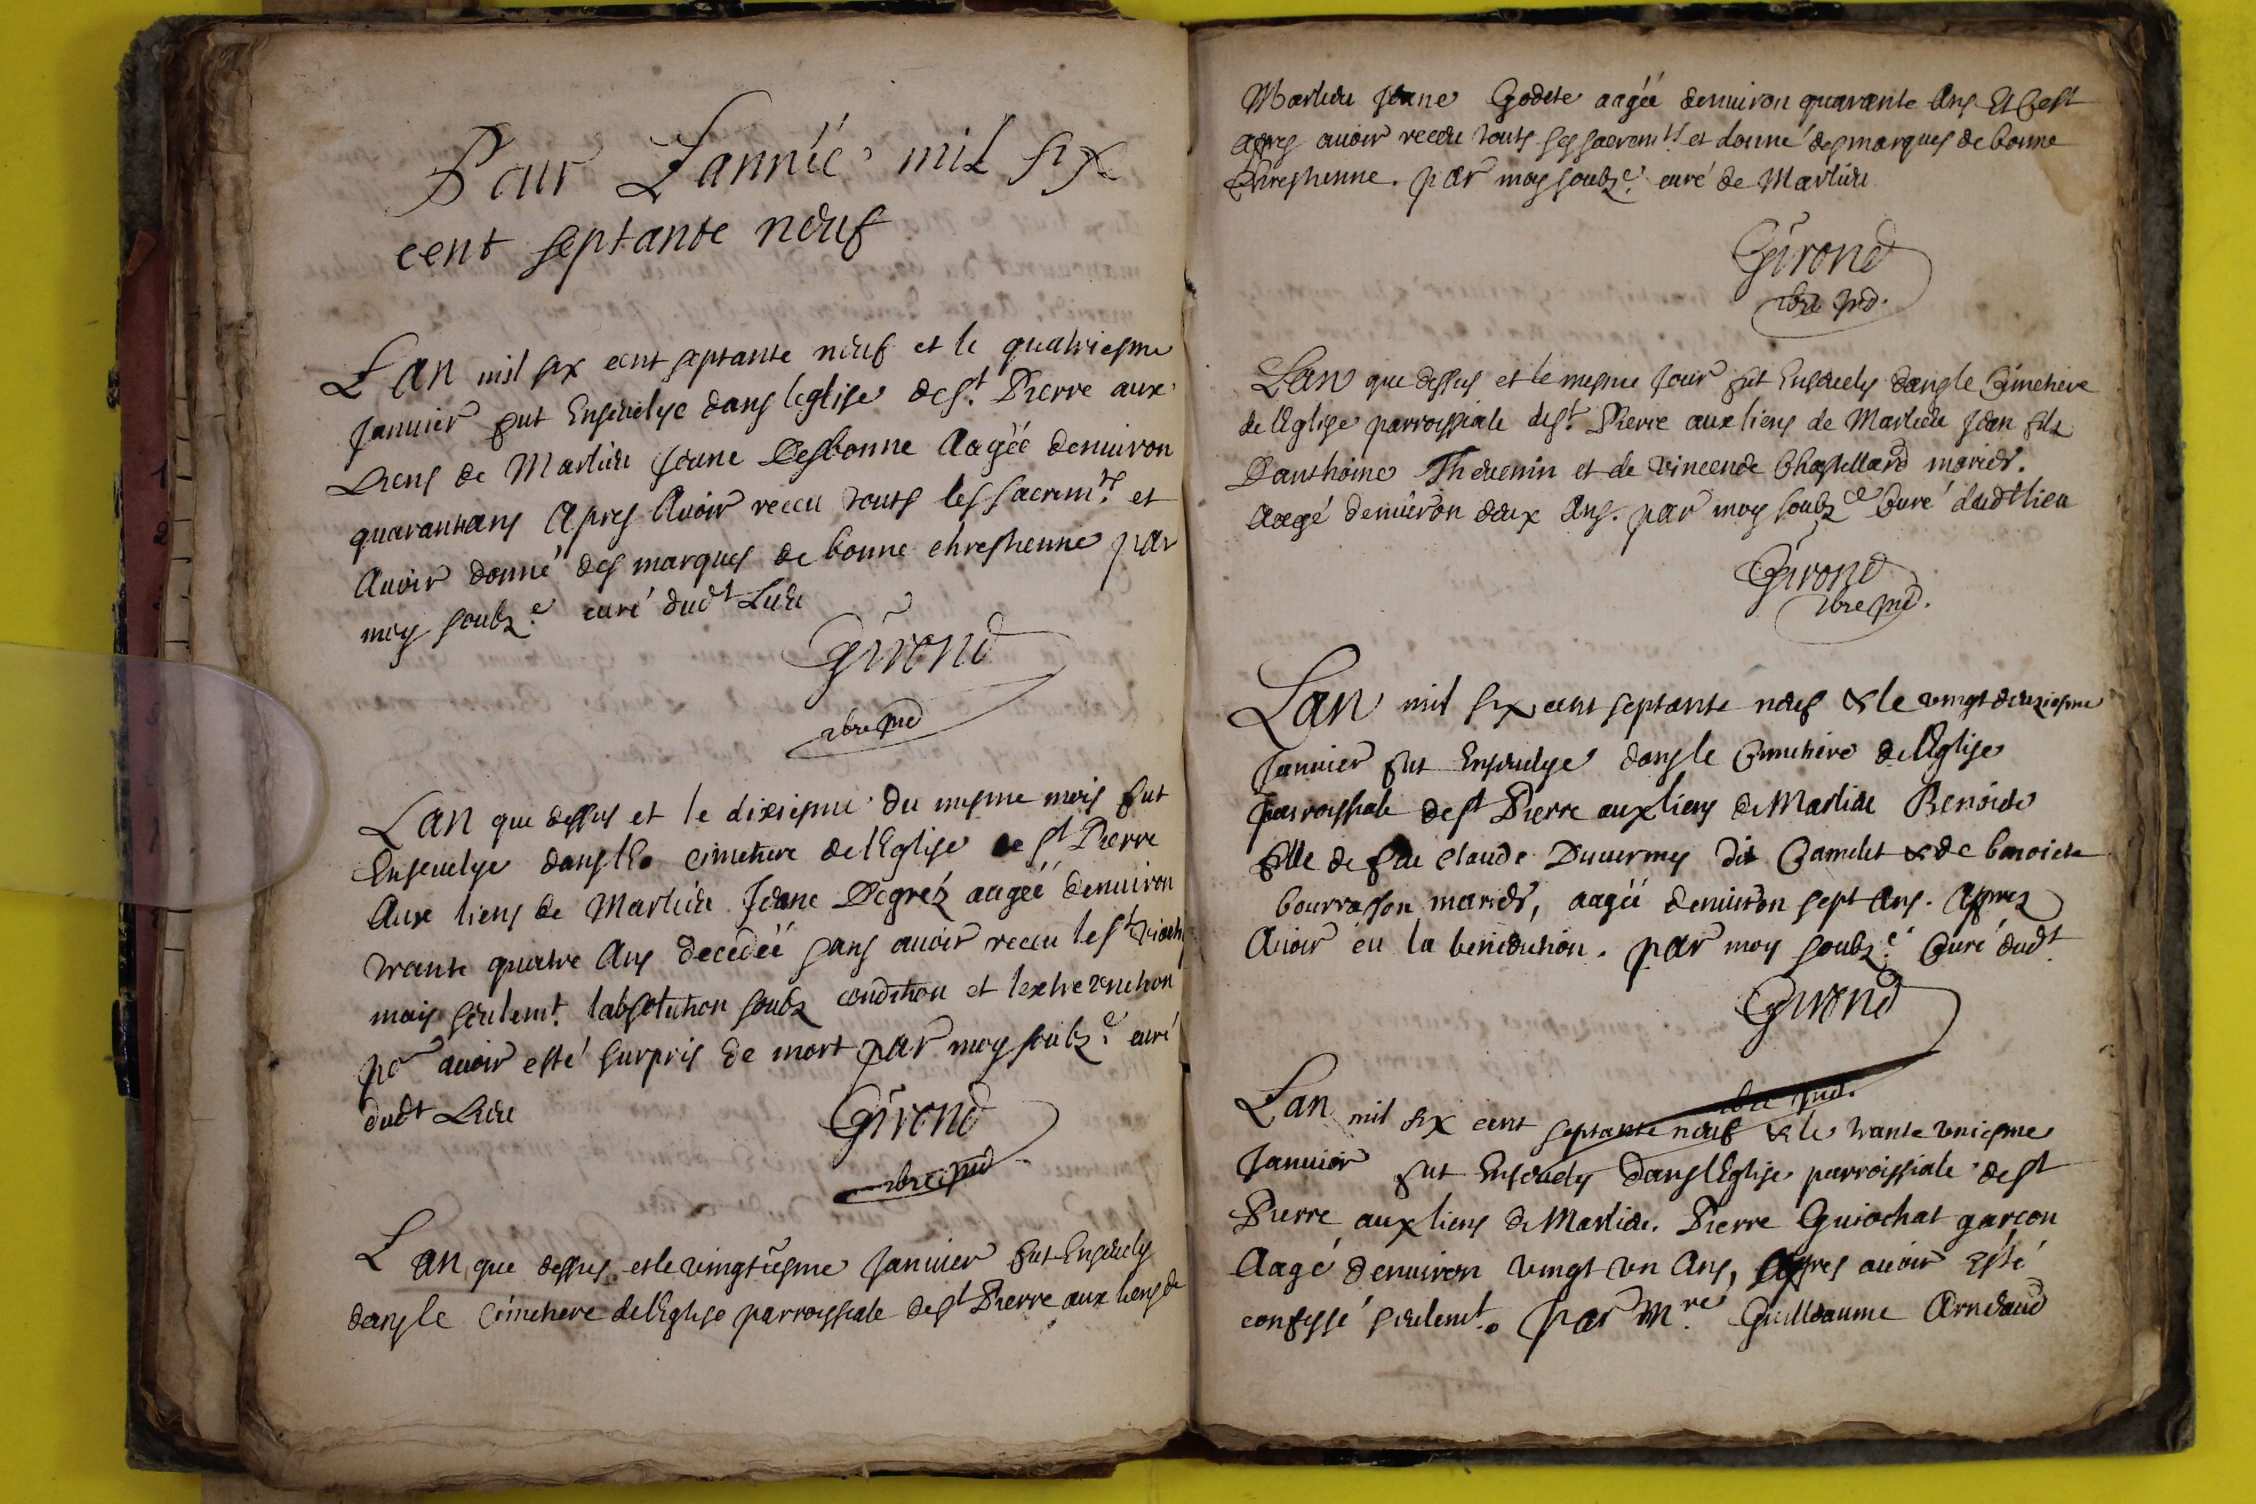 Pour Lannéé mil six
cent septante neuf
Lan mil six cent septante neuf et le quatriesme
Januier fut Enseuelye dans leglise de st. Pierre aux
Liens de Marlieu Jeane Desbonne Aagéé denuiron
quarantans Apres Auoir receu touts les sacremts. et
Auoir donné des marques de bonne chrestienne par
moy soubz.é curé dudt Lieu
Girond
Lan que dessus et le dixiesme du mesme mois fut
Enseuelye dans le cimetiere de lEglise de st Pierre
Aux liens de Marlieu Jeane Degréz aagéé denuiron
trante quatre Ans decedéé sans auoir receu le st
mais seulemt. labsolution soubz condition et lextre onction
por auoir esté surpris de mort par moy soubz.é curé
dudt Lieu
Girond
Lan que dessus et le vingtiesme Januier fut Enseuely
dans le Cimetiere de lEglise parroissiale de st Pierre aux liens de
Marlieu Jeane Godete aagéé denuiron quarante Ans Et
apres auoir receu touts ses sacremts. et donné des marques de bonne
Chrestienne. par moy soubz.é curé de Marlieu
Girond
Lan que dessus et le mesme Jour fut Enseuely dans le Cimetiere
de lEglise parroissiale de st. Pierre aux liens de Marlieu Jean fils
Danthoine Theuenin et de vincende Chastellard mariés.
Aagé denuiron deux Ans. par moy soubzé Curé dudt lieu
Girond
Lan mil six cent septante neuf & le vingt deuxiesme
Januier fut Enseuelye dans le Cimetiere de lEglise
parroissiale de st Pierre aux liens de Marlieu Benoicte
fille de feu Claude Duuernay dit Camelet & de benoicte
bourrasson mariés, aagéé denuiron sept Ans. Apres
Auoir eu la benediction. par moy soubz.é Curé dudt.
Girond
Lan mil six cent septante neuf & le trante vniesme
Januier fut Enseuely dans lEglise parroissiale de st
Pierre aux liens de Marlieu. Pierre Guiochat garçon
Aagé denuiron vingt vn Ans, Apres auoir Esté
confessé seulemt. par Mre. Guillaume Arndaud